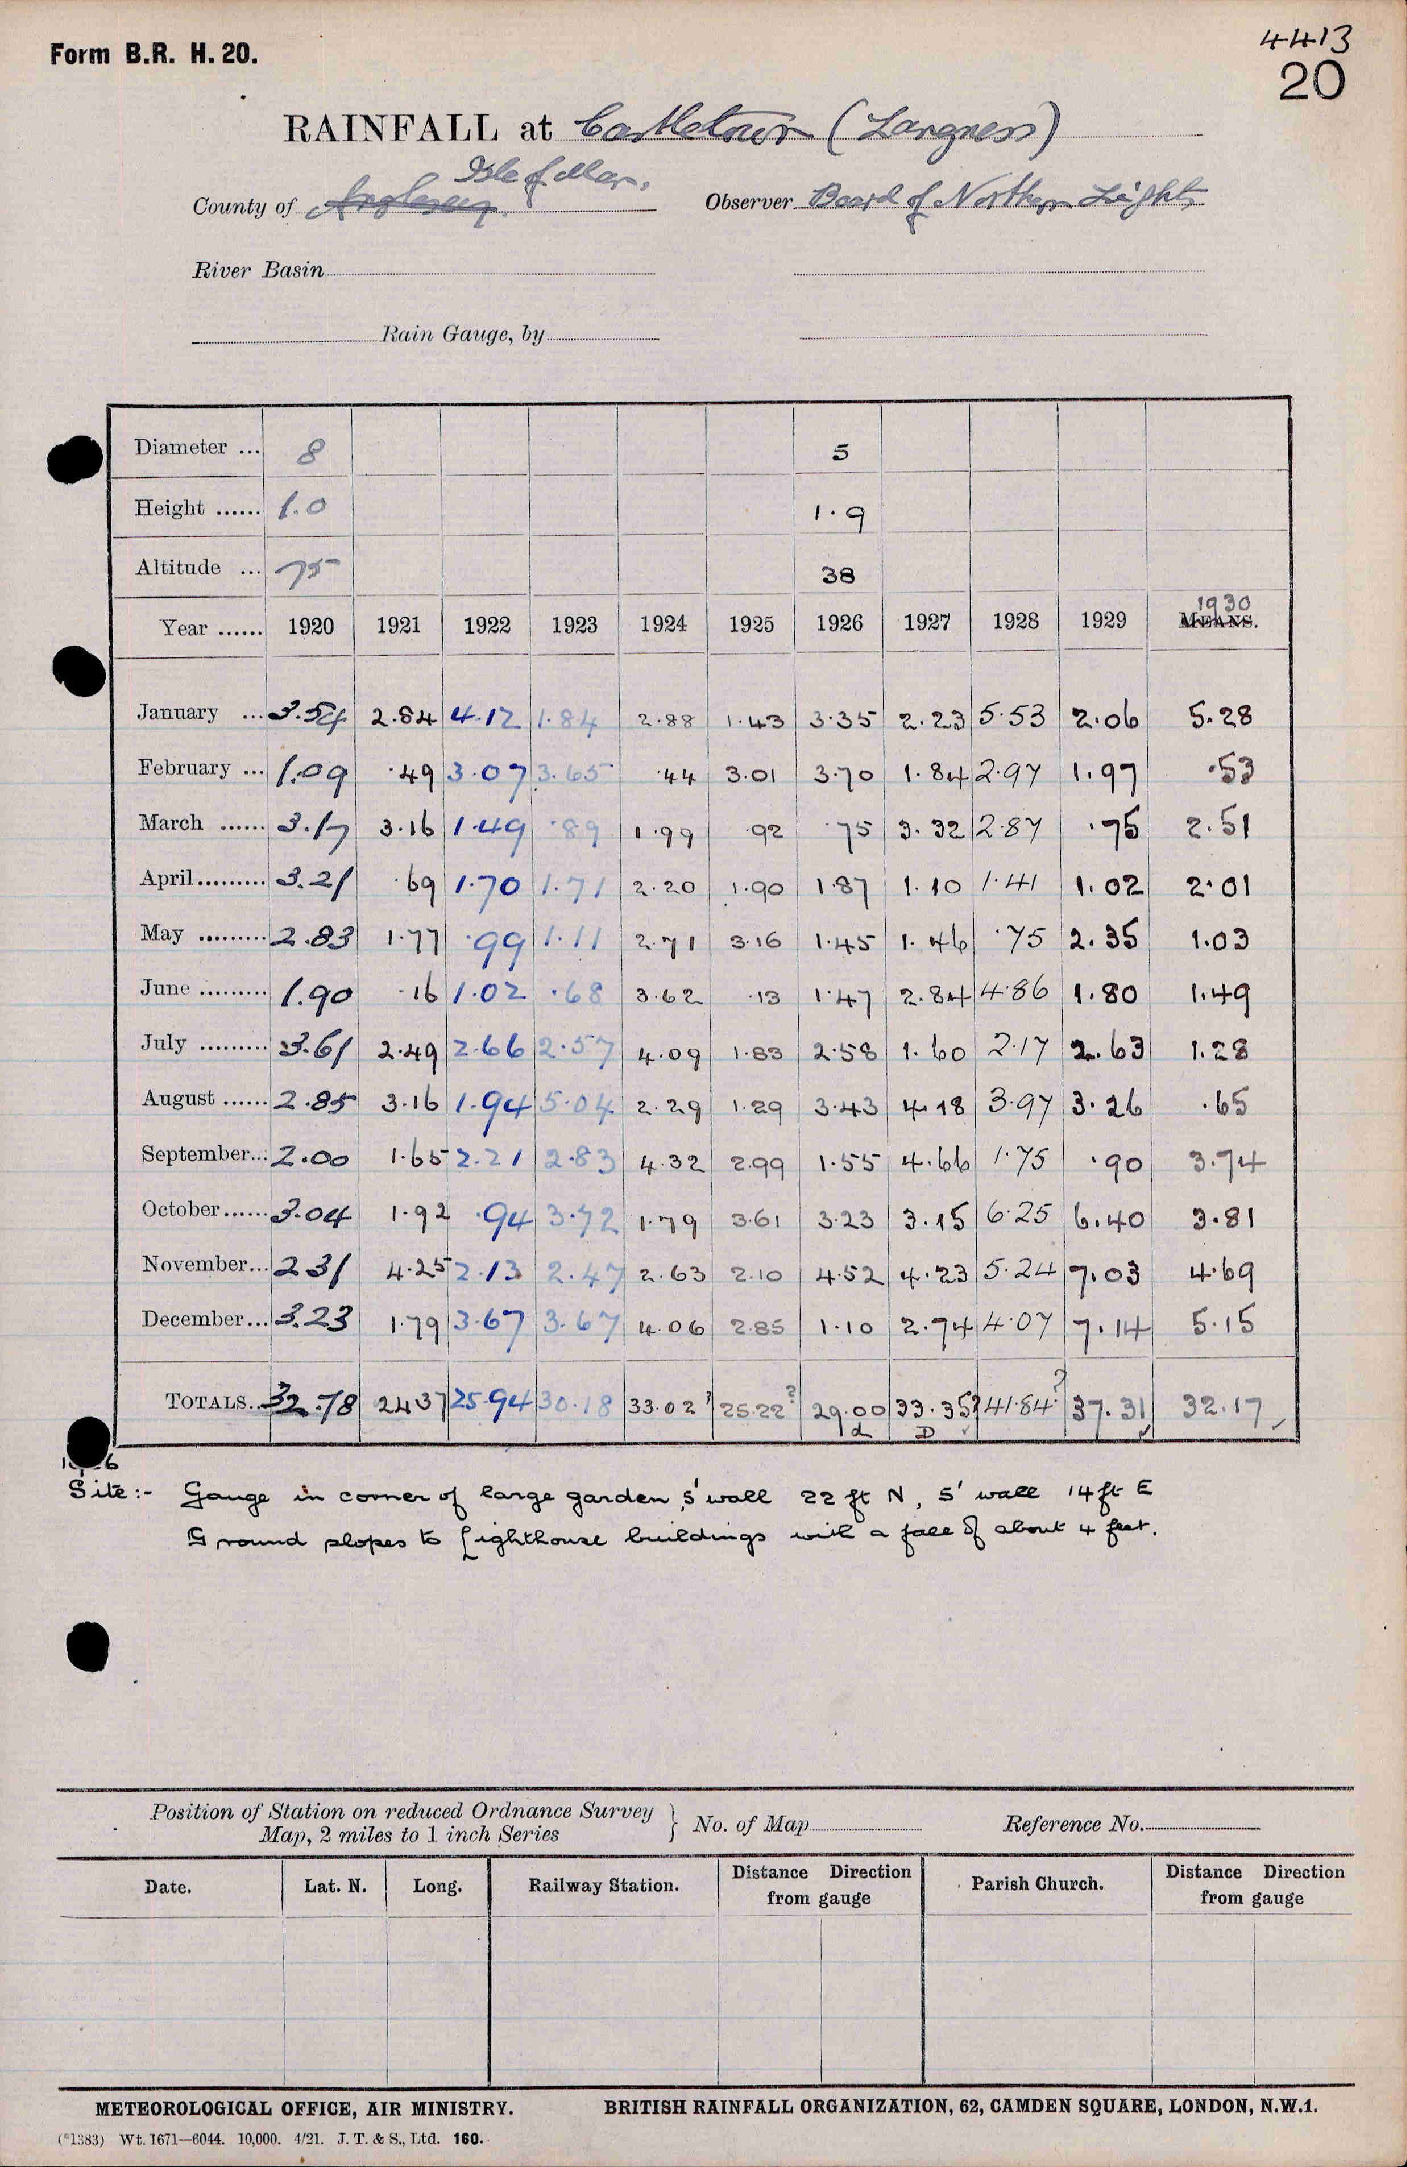 Form B.R. H. 20.
4413
20
RAINFALL at Castletown (Langness)
Isle of Man.
County of Anglesey Observer Board of Northern Lights
River Basin
Rain Gauge, by
Diameter ... 8 5
Height ...... 1.0 1.9
Altitude ... 75 38
1930
Year ...... 1920 1921 1922 1923 1924 1925 1926 1927 1928 1929 MEANS.
January ... 3.54 2.84 4.12 1.84 2.88 1.43 3.35 2.23 5.53 2.06 5.28
February ... 1.09 .49 3.07 3.65 .44 3.01 3.70 1.84 2.97 1.97 .53
March ...... 3.17 3.16 1.49 .89 1.99 .92 .75 3.32 2.87 .75 2.51
April......... 3.21 .69 1.70 1.71 2.20 1.90 1.87 1.10 1.41 1.02 2.01
May ......... 2.83 1.77 .99 1.11 2.71 3.16 1.45 1.46 .75 2.35 1.03
June ......... 1.90 .16 1.02 .68 3.62 .13 1.47 2.84 4.86 1.80 1.49
July ......... 3.61 2.49 2.66 2.57 4.09 1.83 2.58 1.60 2.17 2.63 1.28
August ...... 2.85 3.16 1.94 5.04 2.29 1.29 3.43 4.18 3.97 3.26 .65
September... 2.00 1.65 2.21 2.83 4.32 2.99 1.55 4.66 1.75 .90 3.74
October...... 3.04 1.92 .94 3.72 1.79 3.61 3.23 3.15 6.25 6.40 3.81
November... 2 31 4.25 2.13 2.47 2.63 2.10 4.52 4.23 5.24 7.03 4.69
December... 3.23 1.79 3.67 3.67 4.06 2.85 1.10 2.74 4.07 7.14 5.15
TOTALS... 32.78 24 37 25.94 30.18 33.02? 25.22? 29.00 33.35? 41.84? 37.31 32.17
d D
Site :- Gauge in corner of large garden, 5' wall 22 ft N, 5' wall 14 ft E
Ground slopes to Lighthouse buildings with a fall of about 4 feet.
Position of Station on reduced Ordnance Survey
Map, 2 miles to 1 inch Series } No. of Map Reference No.
Date. Lat. N. Long. Railway Station. Distance Direction from gauge Parish Church. Distance Direction from gauge
METEOROLOGICAL OFFICE, AIR MINISTRY. BRITISH RAINFALL ORGANIZATION, 62, CAMDEN SQUARE, LONDON, N.W.1.
(*1383) Wt. 1671—6044. 10,000. 4/21. J. T. & S., Ltd. 160.